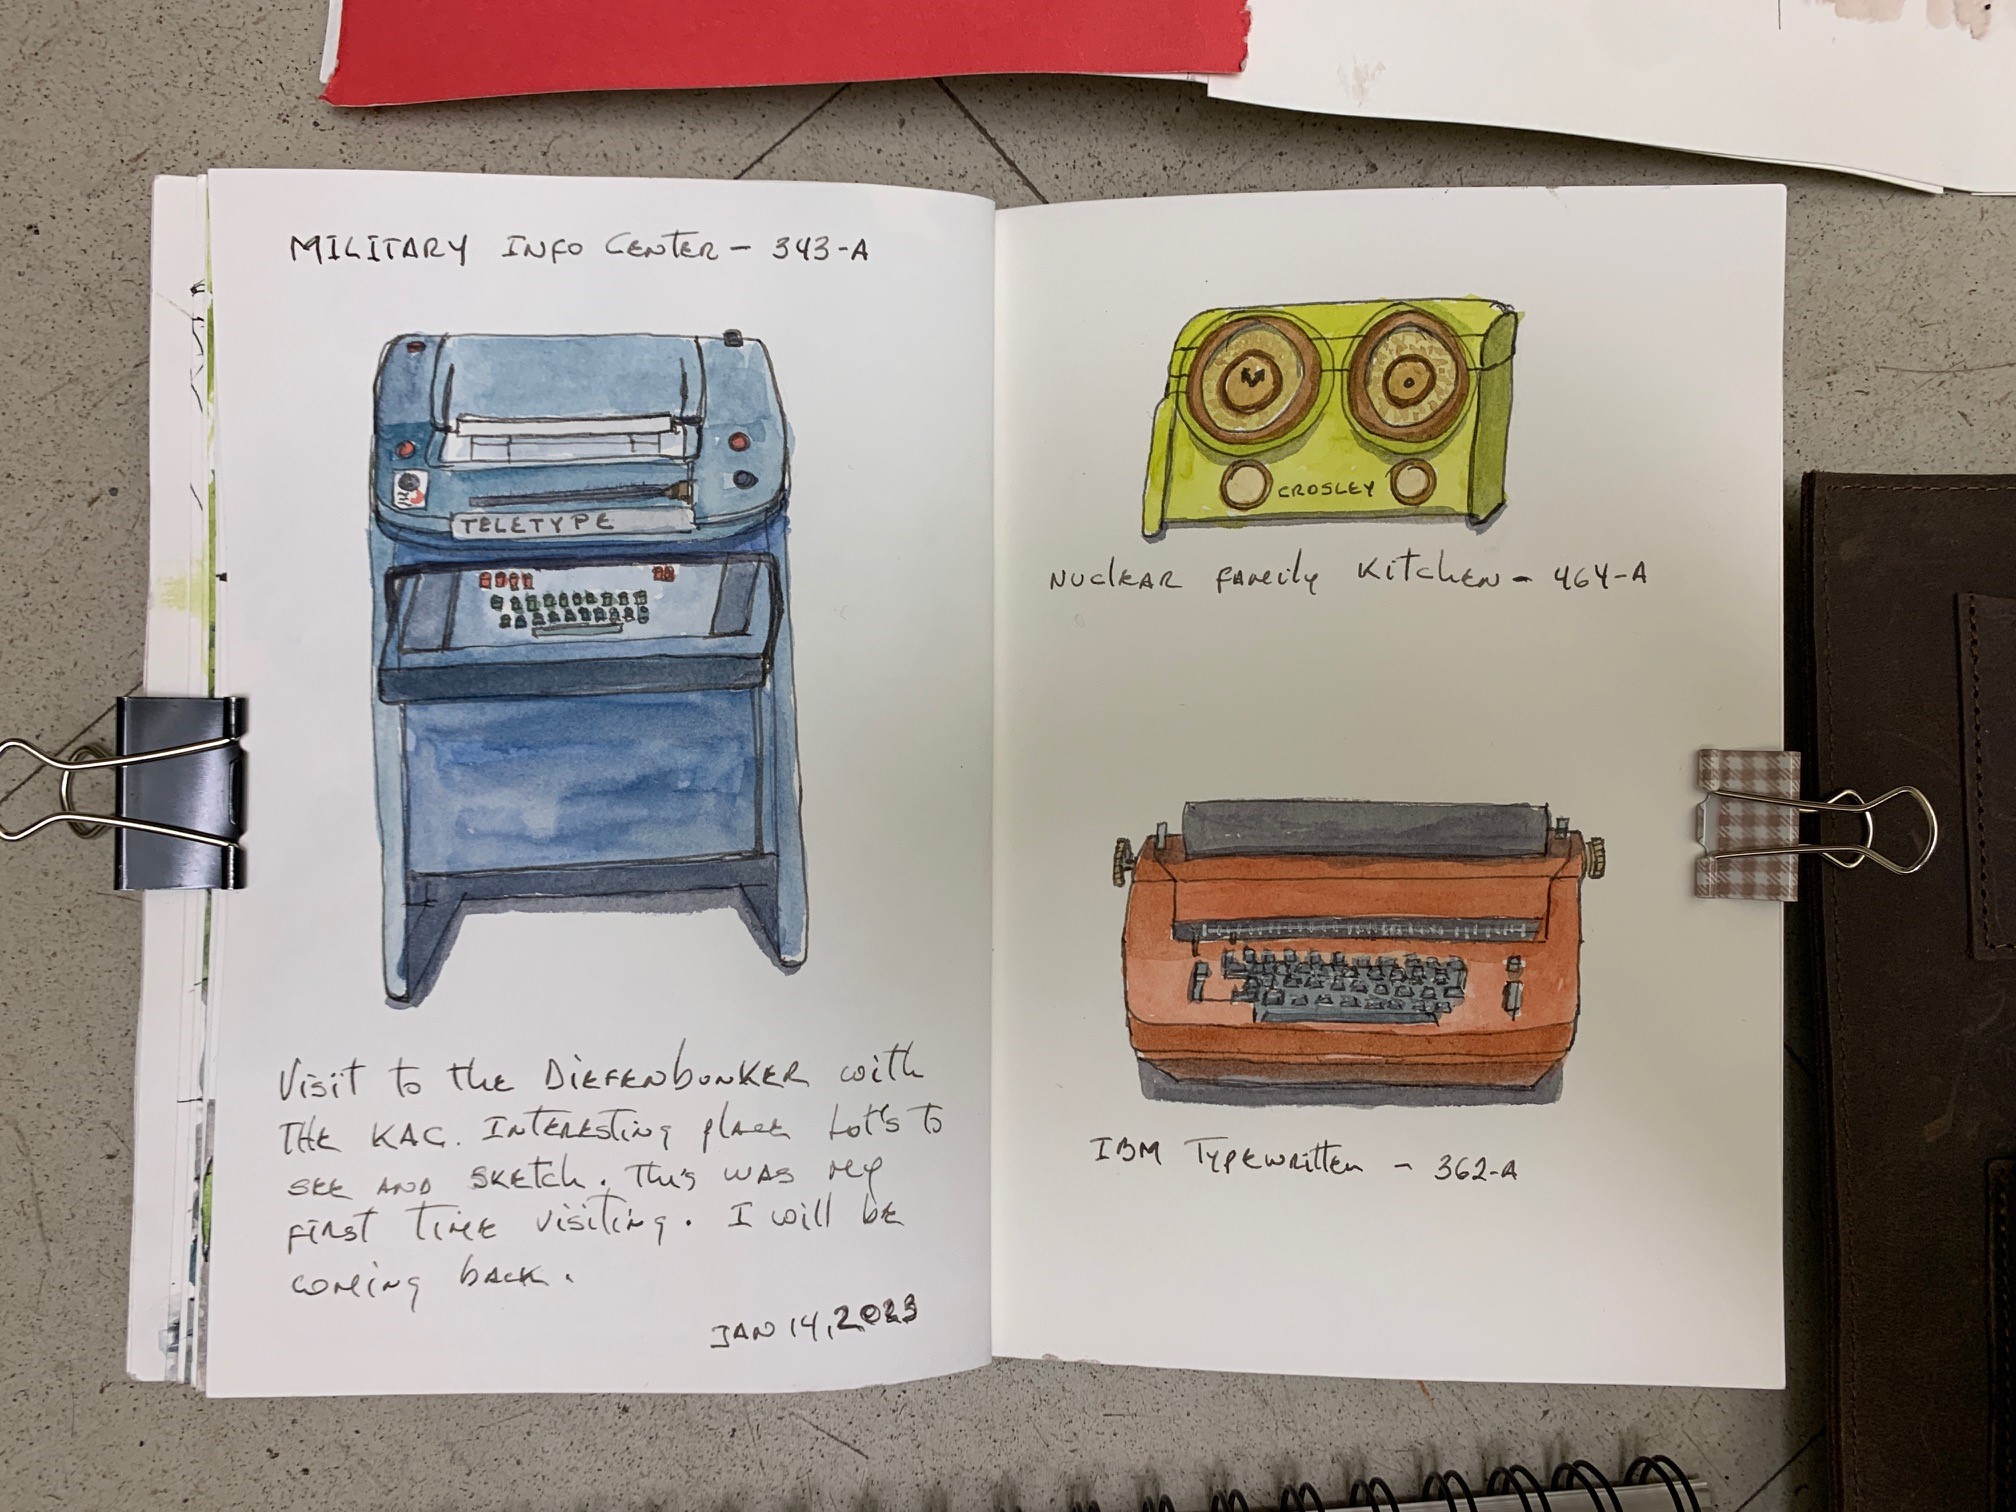 MILITARY INFO CENTER - 343-A
TELETYPE
Visit to the DIEFENbUNKER with
THE KAC. INTERESTING place Lot's to
SEE AND SKETCH. This WAS my
FIRST TIME VISITING. I will be
coming back.
JAN 14, 2023
CROSLEY
NUCLEAR FAMILY KITCHEN - 464-A
IBM Typewritten - 362-A